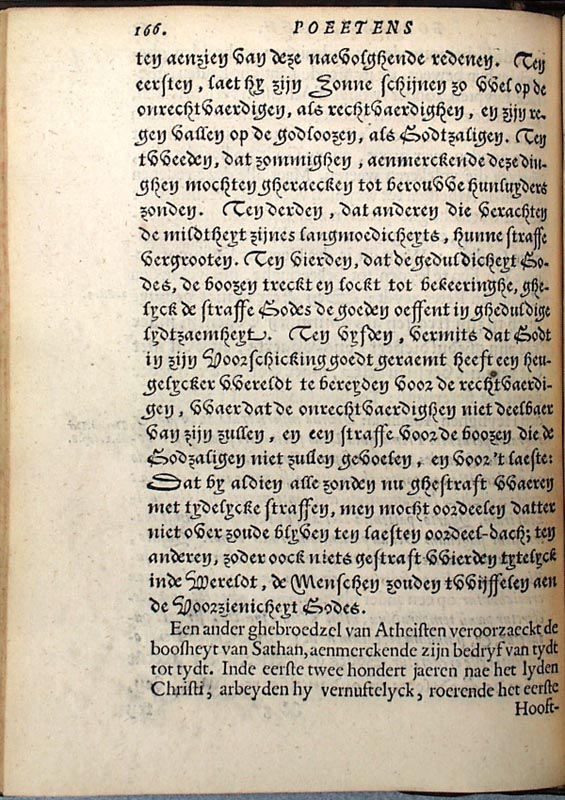 166. POEETENS
ten aenzien van deze naevolghende redenen. Ten
eersten, laet hy zijn Zonne schijnen zo wel op de
onrechtvaerdigen, als rechtvaerdighen, en zijn re-
gen vallen op de godloozen, als Godtzaligen. Ten
tweeden, dat zommighen, aenmerckende deze din-
ghen mochten gheraecken tot berouwe hunluyders
zonden. Ten derden, dat anderen die verachten
de mildtheyt zijnes langmoedicheyts, hunne straffe
vergrooten. Ten vierden, dat de geduldicheyt Go-
des, de boozen treckt en lockt tot bekeeringhe, ghe-
lyck de straffe Godes de goeden oeffent in gheduldige
lydtzaemheyt. Ten vyfden, vermits dat Godt
in zijn Voorschicking goedt geraemt heeft een heu-
gelycker wereldt te bereyden voor de rechtvaerdi-
gen, waer dat de onrechtvaerdighen niet deelbaer
van zijn zullen, en een straffe voor de boozen die de
Godzaligen niet zullen gevoelen, en voor 't laeste:
Dat by aldien alle zonden nu ghestraft waeren
met tydelycke straffen, men mocht oordeelen datter
niet over zoude blyven ten laesten oordeel-dach; ten
anderen, zoder oock niets gestraft wierden tytelyck
inde Wereldt, de Menschen zouden twijffelen aen
de Voorzienicheyt Godes.
Een ander ghebroedzel van Atheisten veroorzaeckt de
boosheyt van Sathan, aenmerckende zijn bedryf van tydt
tot tydt. Inde eerste twee hondert jaeren nae het lyden
Christi, arbeyden hy vernuftelyck, roerende het eerste
Hooft-